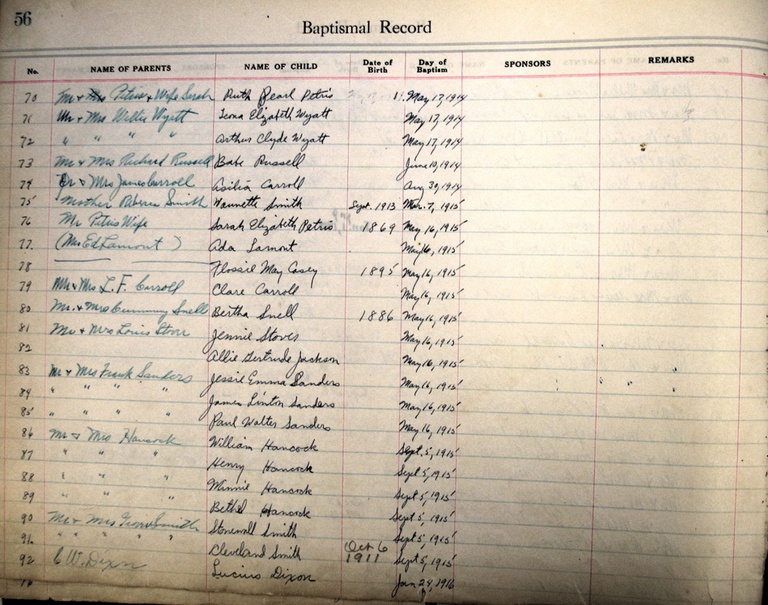 56
Baptismal Record
No. NAME OF PARENTS NAME OF CHILD Date of Birth Day of Baptism SPONSORS REMARKS
70 Mr & Mrs Petris & Wife Sarah Ruth Pearl Petris May 17, 1914
71 Mr & Mrs Willie Wyatt Leona Elizabeth Wyatt May 17, 1914
72 " " " " Arthur Clyde Wyatt May 17, 1914
73 Mr & Mrs Richard Russell Babe Russell June 10, 1914
74 Dr & Mrs James Carroll Carroll Aug 30, 1914
75 Mother Rebecca Smith Nannette Smith Sept. 1913 Mar. 7, 1915
76 Mr Petris Wife Sarah Elizabeth Petris 1869 May 16, 1915
77 (Mrs Ed Lamont) Ada Lamont May 16, 1915
78 Flossie May Casey 1895 May 16, 1915
79 Mr & Mrs L. F. Carroll Clare Carroll May 16, 1915
80 Mr. & Mrs Cummung Snell Bertha Snell 1886 May 16, 1915
81 Mr & Mrs Louis Stove Jennie Stoves May 16, 1915
82 Allie Gertrude Jackson May 16, 1915
83 Mr & Mrs Frank Sanders Jessie Emma Sanders May 16, 1915
84 " " " " James Linton Sanders May 16, 1915
85 " " " " Paul Walter Sanders May 16, 1915
86 Mr & Mrs Hancock William Hancock Sept. 5, 1915
87 " " " " Henry Hancock Sept 5, 1915
88 " " " " Minnie Hancock Sept 5, 1915
89 " " " " Bethel Hancock Sept 5, 1915
90 Mr & Mrs Smith Stonewall Smith Sept 5, 1915
91 " " " " Cleveland Smith Oct 6 1911 Sept 5, 1915
92 C W. Dixon Lucius Dixon Jan 24, 1916